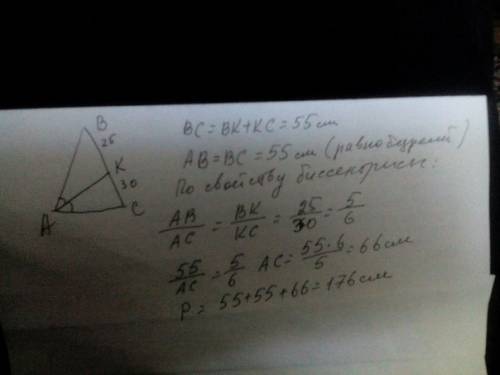 B
25
K
30
A
C
BC = BK + KC = 55 см
AB = BC = 55 см (равнобедрен)
По свойству биссектрисы:
AB/AC = BK/KC = 25/30 = 5/6
55/AC = 5/6 AC = 55·6/5 = 66 см
P = 55 + 55 + 66 = 176 см